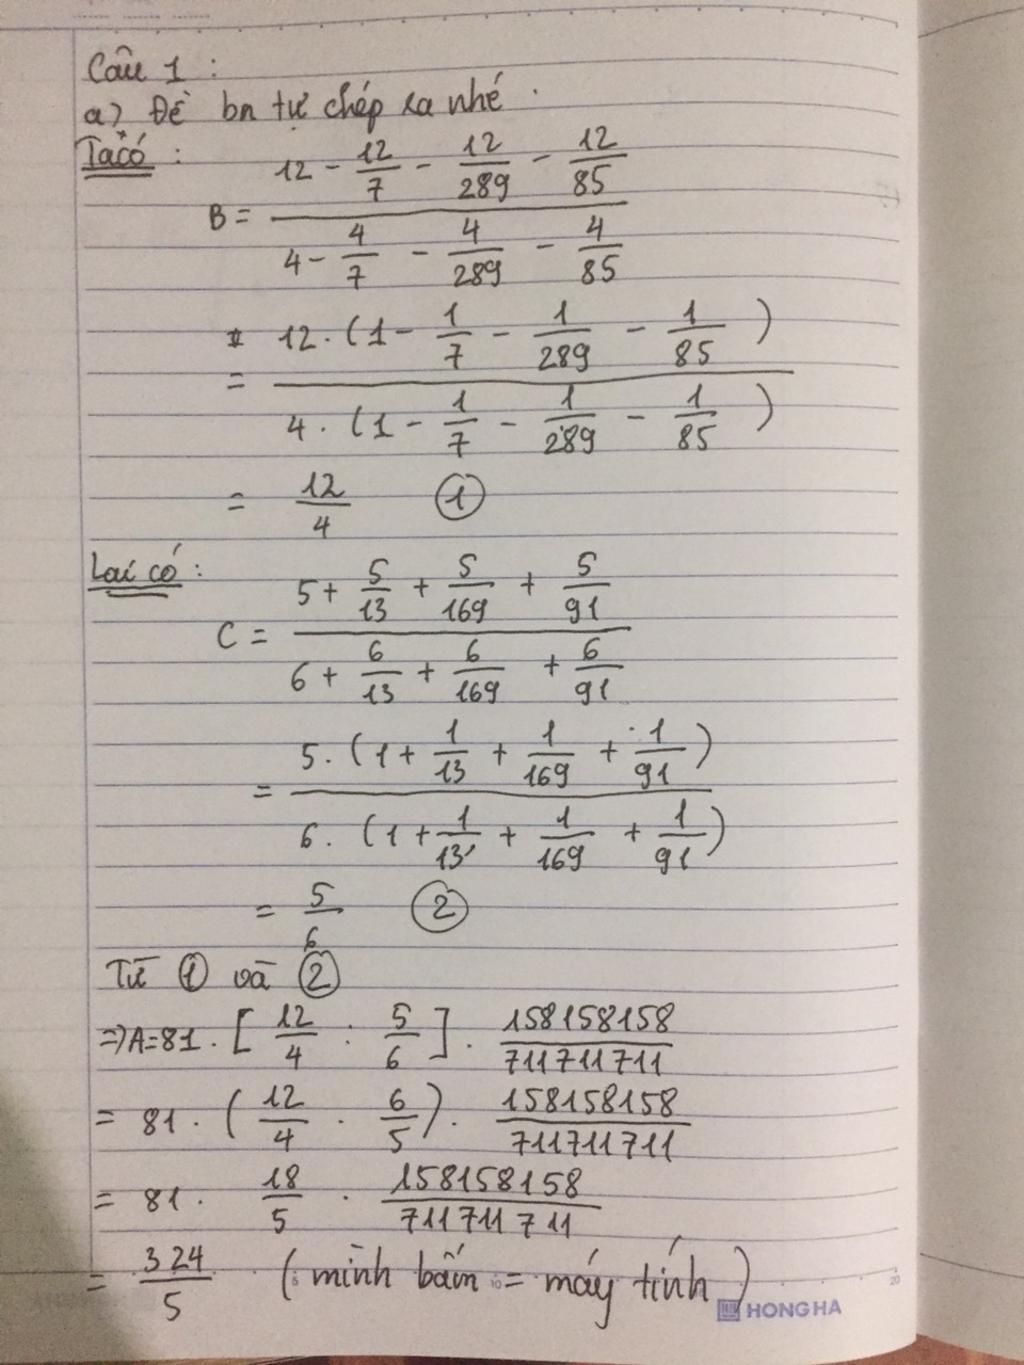 Câu 1 :
a) Đề bn tự chép ra nhé .
Ta có :
B = (12 - 12/7 - 12/289 - 12/85) / (4 - 4/7 - 4/289 - 4/85)
= (12 . (1 - 1/7 - 1/289 - 1/85)) / (4 . (1 - 1/7 - 1/289 - 1/85))
= 12/4 ①
Lại có :
C = (5 + 5/13 + 5/169 + 5/91) / (6 + 6/13 + 6/169 + 6/91)
= (5. (1 + 1/13 + 1/169 + 1/91)) / (6. (1 + 1/13 + 1/169 + 1/91))
= 5/6 ②
Từ ① và ②
=> A = 81 . [12/4 : 5/6] . 158158158/711711711
= 81 . (12/4 . 6/5) . 158158158/711711711
= 81 . 18/5 . 158158158/711711711
= 324/5 (mình bấm = máy tính)
HONG HA